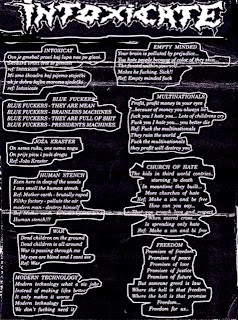 INTOXICATE
INTOXICAT
Ono je gomelat pravi kog lupa nas po glavi
ref: Intoxicate
BLUE FUCKER
BLUE FUCKERS - THEY ARE MEAN
BLUE FUCKERS - BRAINLESS MACHINES
BLUE FUCKERS - THEY ARE FULL OF SHIT
BLUE FUCKERS - PRESIDENTS MACHINES
JOZA KRASTER
On nema ruku, one nema noge
On prije picu i puši drogu
Ref: Joža Kraster
HUMAN STENCH
Even here in deep of the woods
I can smell the human stench
Ref: Mother earth - brutally raped
Filthy factory - pollute the air
modern man - destroy himself
Ref: Mother earth
Human stench!!!
WAR
Dead children on the ground
Dead children is all around
War is passing through me
My eyes are blind and I cant see
Ref: War
MODERN TECHNOLOGY
Modern technology what a we job
Instead of making life better
It only makes it worse
Modern technology
We don't fucking need it
EMPTY MINDED
Your brain is polluted by prejudice...
You hate people because of color of they skin
Makes he fucking. Sick!!
Ref: Empty minded fuck
MULTINATIONALS
Profit, profit money in your eyes
because of money you always lie
fuck you I hate you... Lots of children cry
Fuck you I hate you... you better die
Ref: Fuck the multinationals
They ruin the world
Fuck the multinationals
they profit will destroy you
CHURCH OF HATE
The kids in third world contries
starving to death
In meantime they built
More churches of hate
Ref: Make a sin and be free
How can you say
That you preach love and respect
is spreading only hate
Ref: Make a sin and be free
FREEDOM
Promises of freedom
Promises of peace
Promises of bear
Promises of justice
Promises of future
But someone greed is law
Where the hell is that freedom
Where the hell is that promise
Freedom...
Freedom for us..